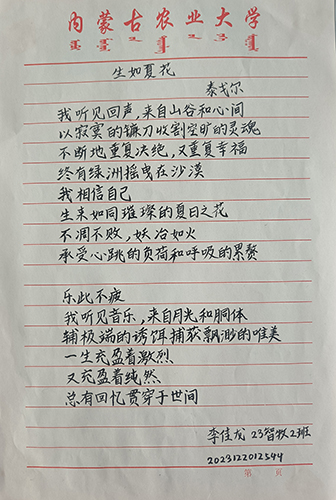 内蒙古农业大学
生如夏花
泰戈尔
我听见回声，来自山谷和心间
以寂寞的镰刀收割空旷的灵魂
不断地重复决绝，又重复幸福
终有绿洲摇曳在沙漠
我相信自己
生来如同璀璨的夏日之花
不凋不败，妖冶如火
承受心跳的负荷和呼吸的累赘
乐此不疲
我听见音乐，来自月光和胴体
辅极端的诱饵捕获飘渺的唯美
一生充盈着激烈
又充盈着纯然
总有回忆贯穿于世间
李佳龙 23智牧2班
2023122012544
第 页